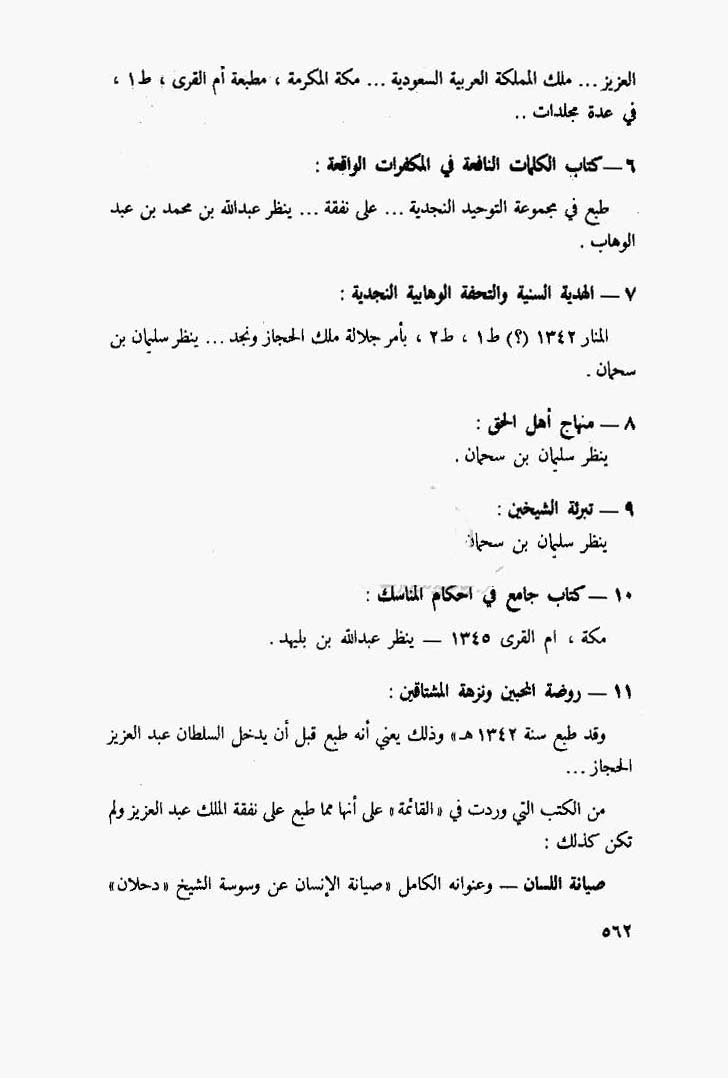 العزيز ... ملك المملكة العربية السعودية ... مكة المكرمة ، مطبعة أم القرى ، ط ١ ،
في عدة مجلدات ..
٦ — كتاب الكلمات النافعة في المكفرات الواقعة :
طبع في مجموعة التوحيد النجدية ... على نفقة ... ينظر عبدالله بن محمد بن عبد
الوهاب .
٧ — الهدية السنية والتحفة الوهابية النجدية :
المنار ١٣٤٢ (؟) ط ١ ، ط ٢ ، بأمر جلالة ملك الحجاز ونجد ... ينظر سليمان بن
سحمان .
٨ — منهاج أهل الحق :
ينظر سليمان بن سحمان .
٩ — تبرئة الشيخين :
ينظر سليمان بن سحمان
١٠ — كتاب جامع في احكام المناسك :
مكة ، ام القرى ١٣٤٥ — ينظر عبدالله بن بليهد .
١١ — روضة المحبين ونزهة المشتاقين :
وقد طبع سنة ١٣٤٢ هـ» وذلك يعني أنه طبع قبل أن يدخل السلطان عبد العزيز
الحجاز ...
من الكتب التي وردت في «القائمة» على أنها مما طبع على نفقة الملك عبد العزيز ولم
تكن كذلك :
صيانة اللسان — وعنوانه الكامل «صيانة الإنسان عن وسوسة الشيخ «دحلان»
٥٦٢